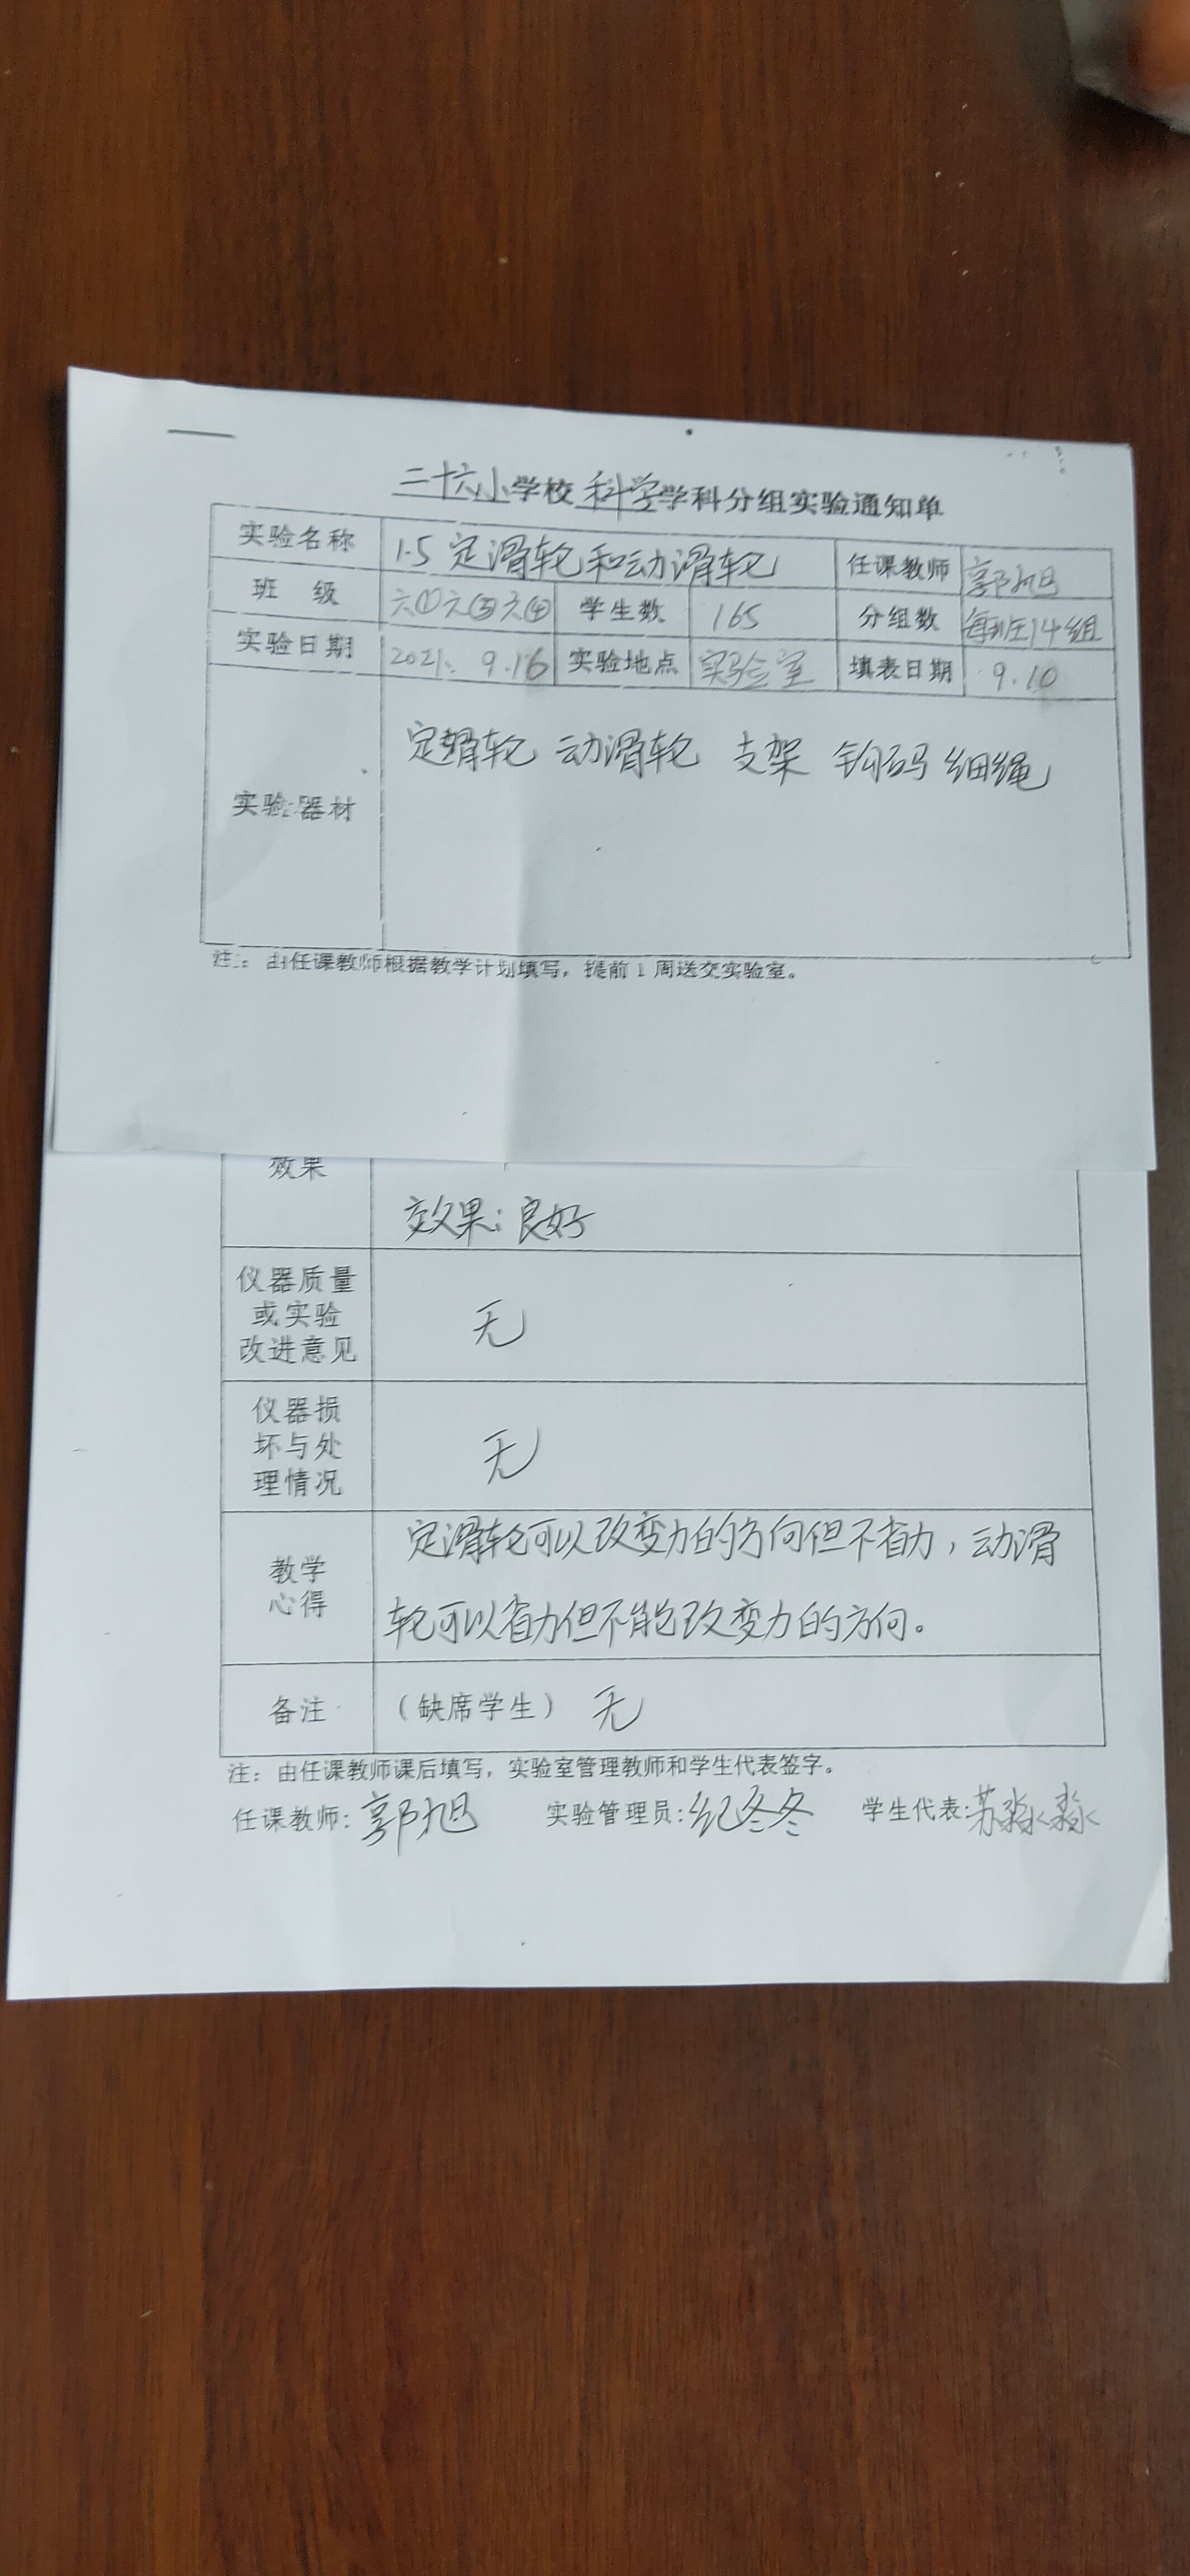 二十六小学校科学学科分组实验通知单
实验名称 1.5 定滑轮和动滑轮 任课教师 郭旭
班 级 六①六③六④ 学生数 165 分组数 每班14组
实验日期 2021. 9.16 实验地点 实验室 填表日期 9.10
实验器材 定滑轮 动滑轮 支架 钩码 细绳
注: 由任课教师根据教学计划填写,提前1周送交实验室。
效果
效果:良好
仪器质量
或实验
改进意见
无
仪器损
坏与处
理情况
无
教学
心得
定滑轮可以改变力的方向但不省力,动滑
轮可以省力但不能改变力的方向。
备注 (缺席学生) 无
注:由任课教师课后填写,实验室管理教师和学生代表签字。
任课教师:郭旭 实验管理员:纪冬冬 学生代表:苏淼淼